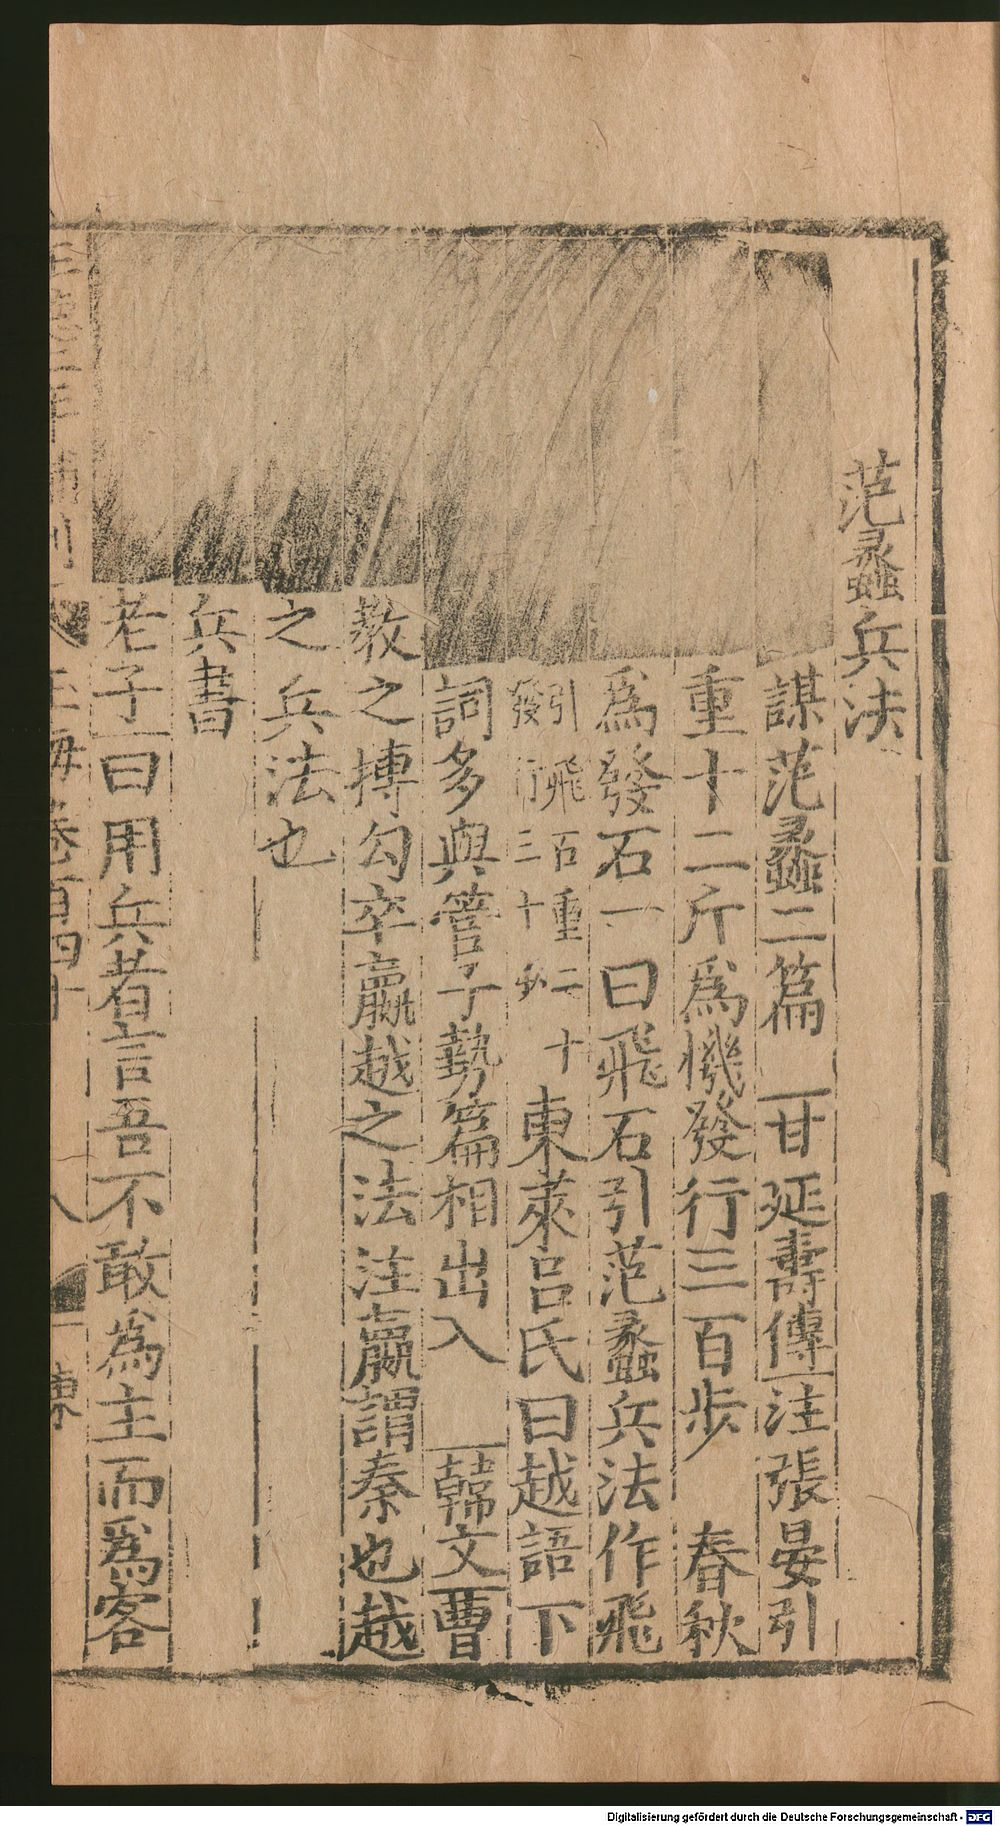 范蠡兵法
謀范蠡二篇 甘延壽傳注張晏引
重十二斤爲機發行三百步 春秋
爲發石一曰飛石引范蠡兵法作飛
引飛石重二十
發行三十步
東萊吕氏曰越語下
詞多與管子勢篇相出入 韓文曹
敎之摶勾卒嬴越之法注嬴謂秦也越
之兵法也
兵書
老子曰用兵者言吾不敢爲主而爲客
玉海卷百四十
八
Digitalisierung gefördert durch die Deutsche Forschungsgemeinschaft - DFG